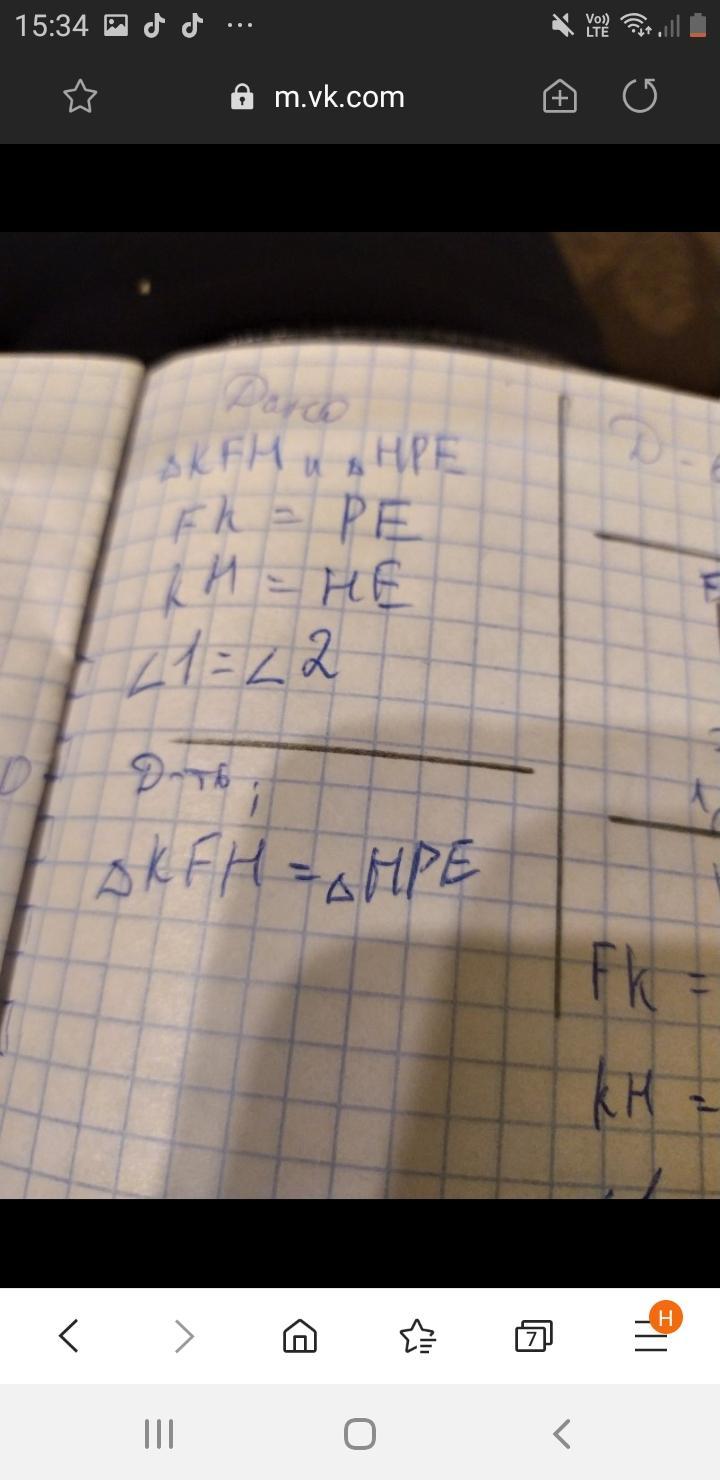 15:34
Vo)) LTE
m.vk.com
Дано
△KFH и △HPE
FK = PE
KH = HE
∠1 = ∠2
Д-ть;
△KFH = △HPE
Д-
FK =
KH =
7
H